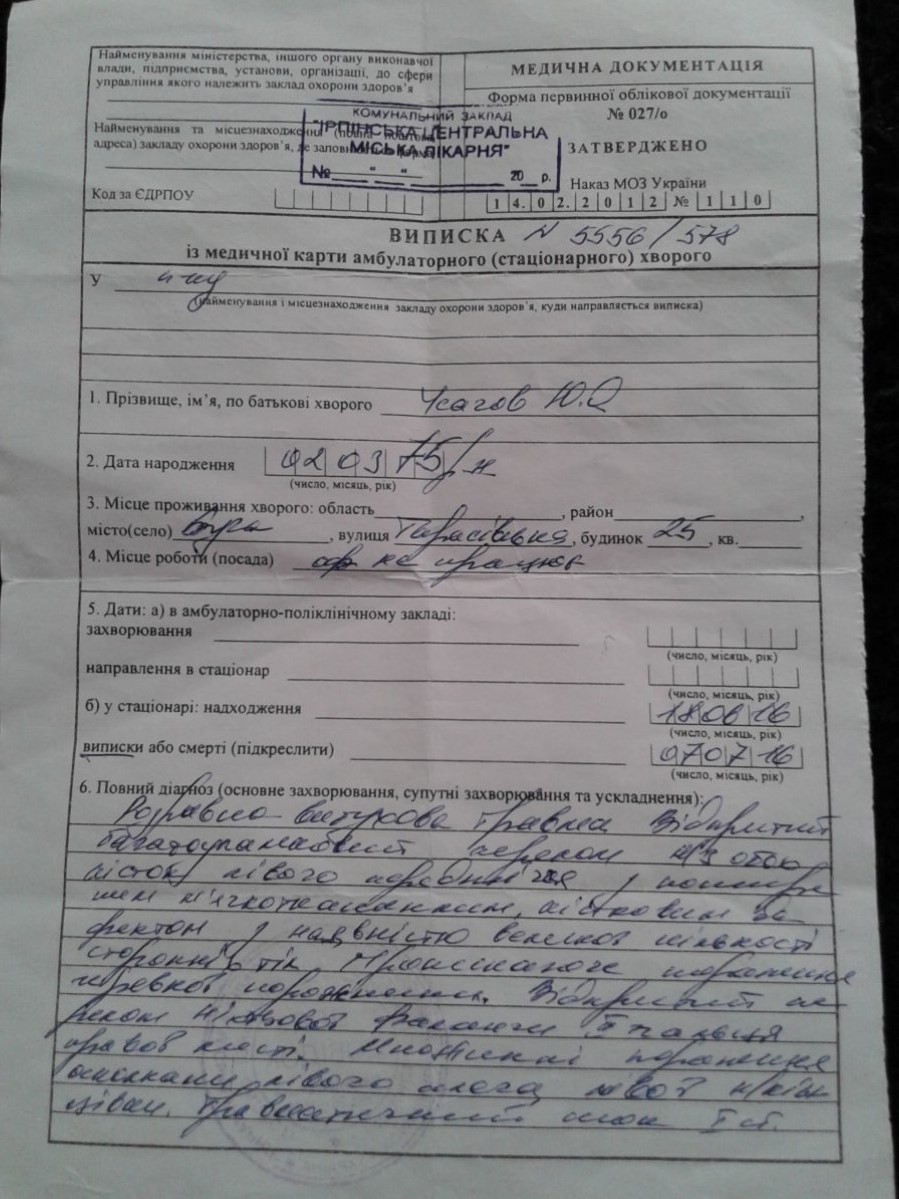 Найменування міністерства, іншого органу виконавчої
влади, підприємства, установи, організації, до сфери
управління якого належить заклад охорони здоров'я
Найменування та місцезнаходження (повна поштова
адреса) закладу охорони здоров'я, де заповнюється форма
Код за ЄДРПОУ
КОМУНАЛЬНИЙ ЗАКЛАД
"ІРПІНСЬКА ЦЕНТРАЛЬНА
МІСЬКА ЛІКАРНЯ"
№ " " 20 р.
МЕДИЧНА ДОКУМЕНТАЦІЯ
Форма первинної облікової документації
№ 027/о
ЗАТВЕРДЖЕНО
Наказ МОЗ України
14.02.2012 № 110
ВИПИСКА N 5556/578
із медичної карти амбулаторного (стаціонарного) хворого
У
(найменування і місцезнаходження закладу охорони здоров'я, куди направляється виписка)
1. Прізвище, ім'я, по батькові хворого Усагов Ю.О
2. Дата народження 02 03 75
(число, місяць, рік)
3. Місце проживання хворого: область , район ,
місто(село) Буча , вулиця Тарасівська , будинок 25 , кв.
4. Місце роботи (посада) не працює
5. Дати: а) в амбулаторно-поліклінічному закладі:
захворювання
(число, місяць, рік)
направлення в стаціонар
(число, місяць, рік)
б) у стаціонарі: надходження 180616
(число, місяць, рік)
виписки або смерті (підкреслити) 070716
(число, місяць, рік)
6. Повний діагноз (основне захворювання, супутні захворювання та ускладнення):
травма Відкритий
багатоуламковий перелом н/3 обох
кісток лівого передпліччя з
м'якотканинним, кістковим де-
фектом з наявністю великої кількості
сторонніх тіл. Проникаюче поранення
черевної порожнини. Відкритий пе-
релом нігтьової фаланги II пальця
правої кисті. Множинні поранення
осколками лівого лівої н/кін-
цівки. Травматичний шок I ст.